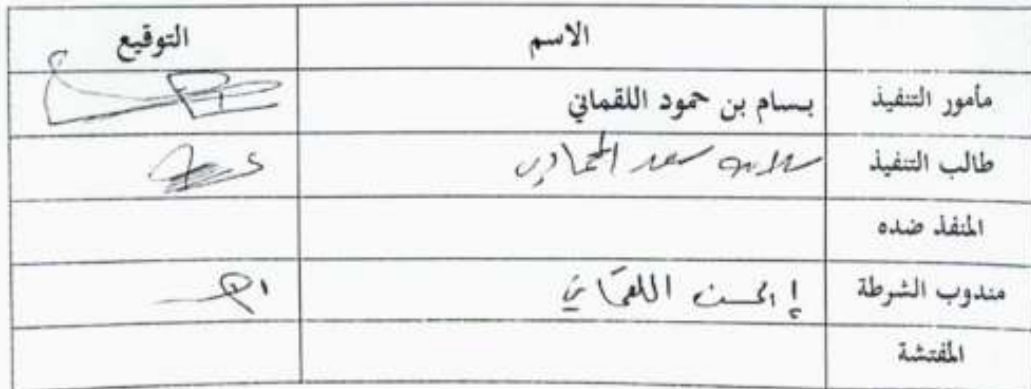 الاسم التوقيع
مأمور التنفيذ بسام بن حمود اللقماني
طالب التنفيذ سعد
المنفذ ضده
مندوب الشرطة الحسن اللقماني
المفتشة